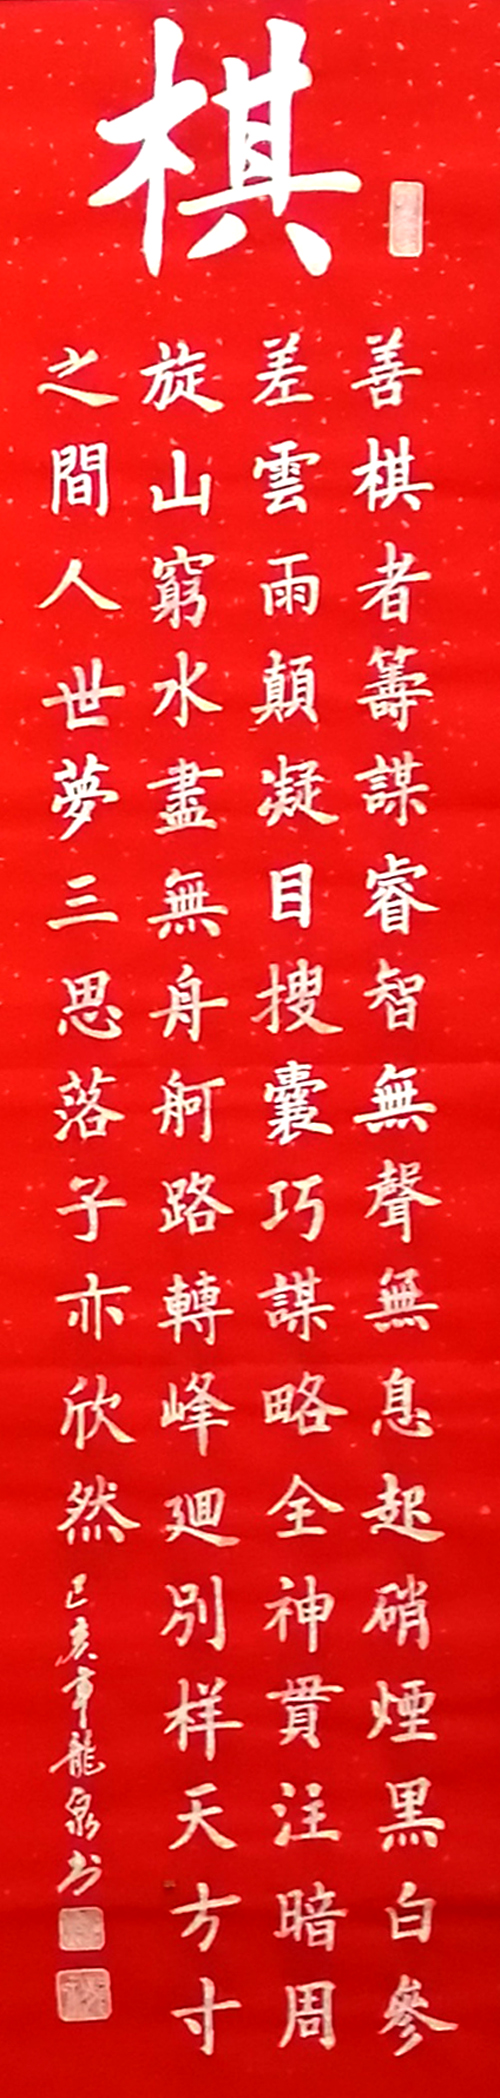 棋
善棋者籌謀睿智無聲無息起硝煙黑白參
差雲雨顛凝目搜囊巧謀略全神貫注暗周
旋山窮水盡無舟舸路轉峰迴別样天方寸
之間人世夢三思落子亦欣然
己亥年龍泉书